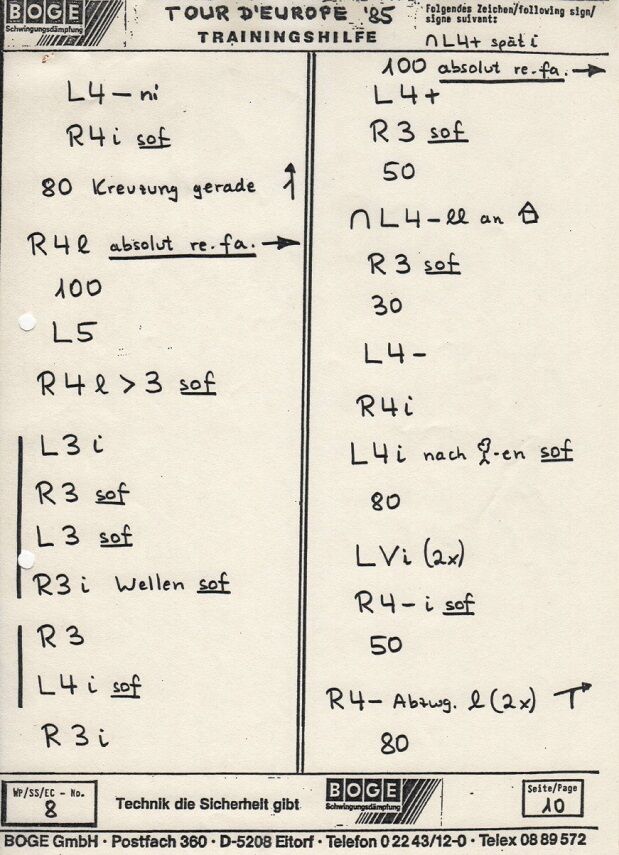 BOGE
Schwingungsdämpfung
TOUR D'EUROPE '85
TRAININGSHILFE
Folgendes Zeichen/following sign/
signe suivant:
∩L4+ spät i
L4 – ni
R4 i sof
80 Kreuzung gerade
R4 l absolut re. fa. →
100
L5
R4 l > 3 sof
L3 i
R3 sof
L3 sof
R3 i Wellen sof
R3
L4 i sof
R3 i
100 absolut re. fa. →
L4+
R3 sof
50
∩L4–ll an
R3 sof
30
L4–
R4 i
L4 i nach -en sof
80
LVi (2x)
R4– i sof
50
R4– Abzwg. l (2x)
80
WP/SS/EC - No.
8
Technik die Sicherheit gibt
BOGE
Schwingungsdämpfung
Seite/Page
10
BOGE GmbH · Postfach 360 · D-5208 Eitorf · Telefon 0 22 43/12-0 · Telex 08 89 572